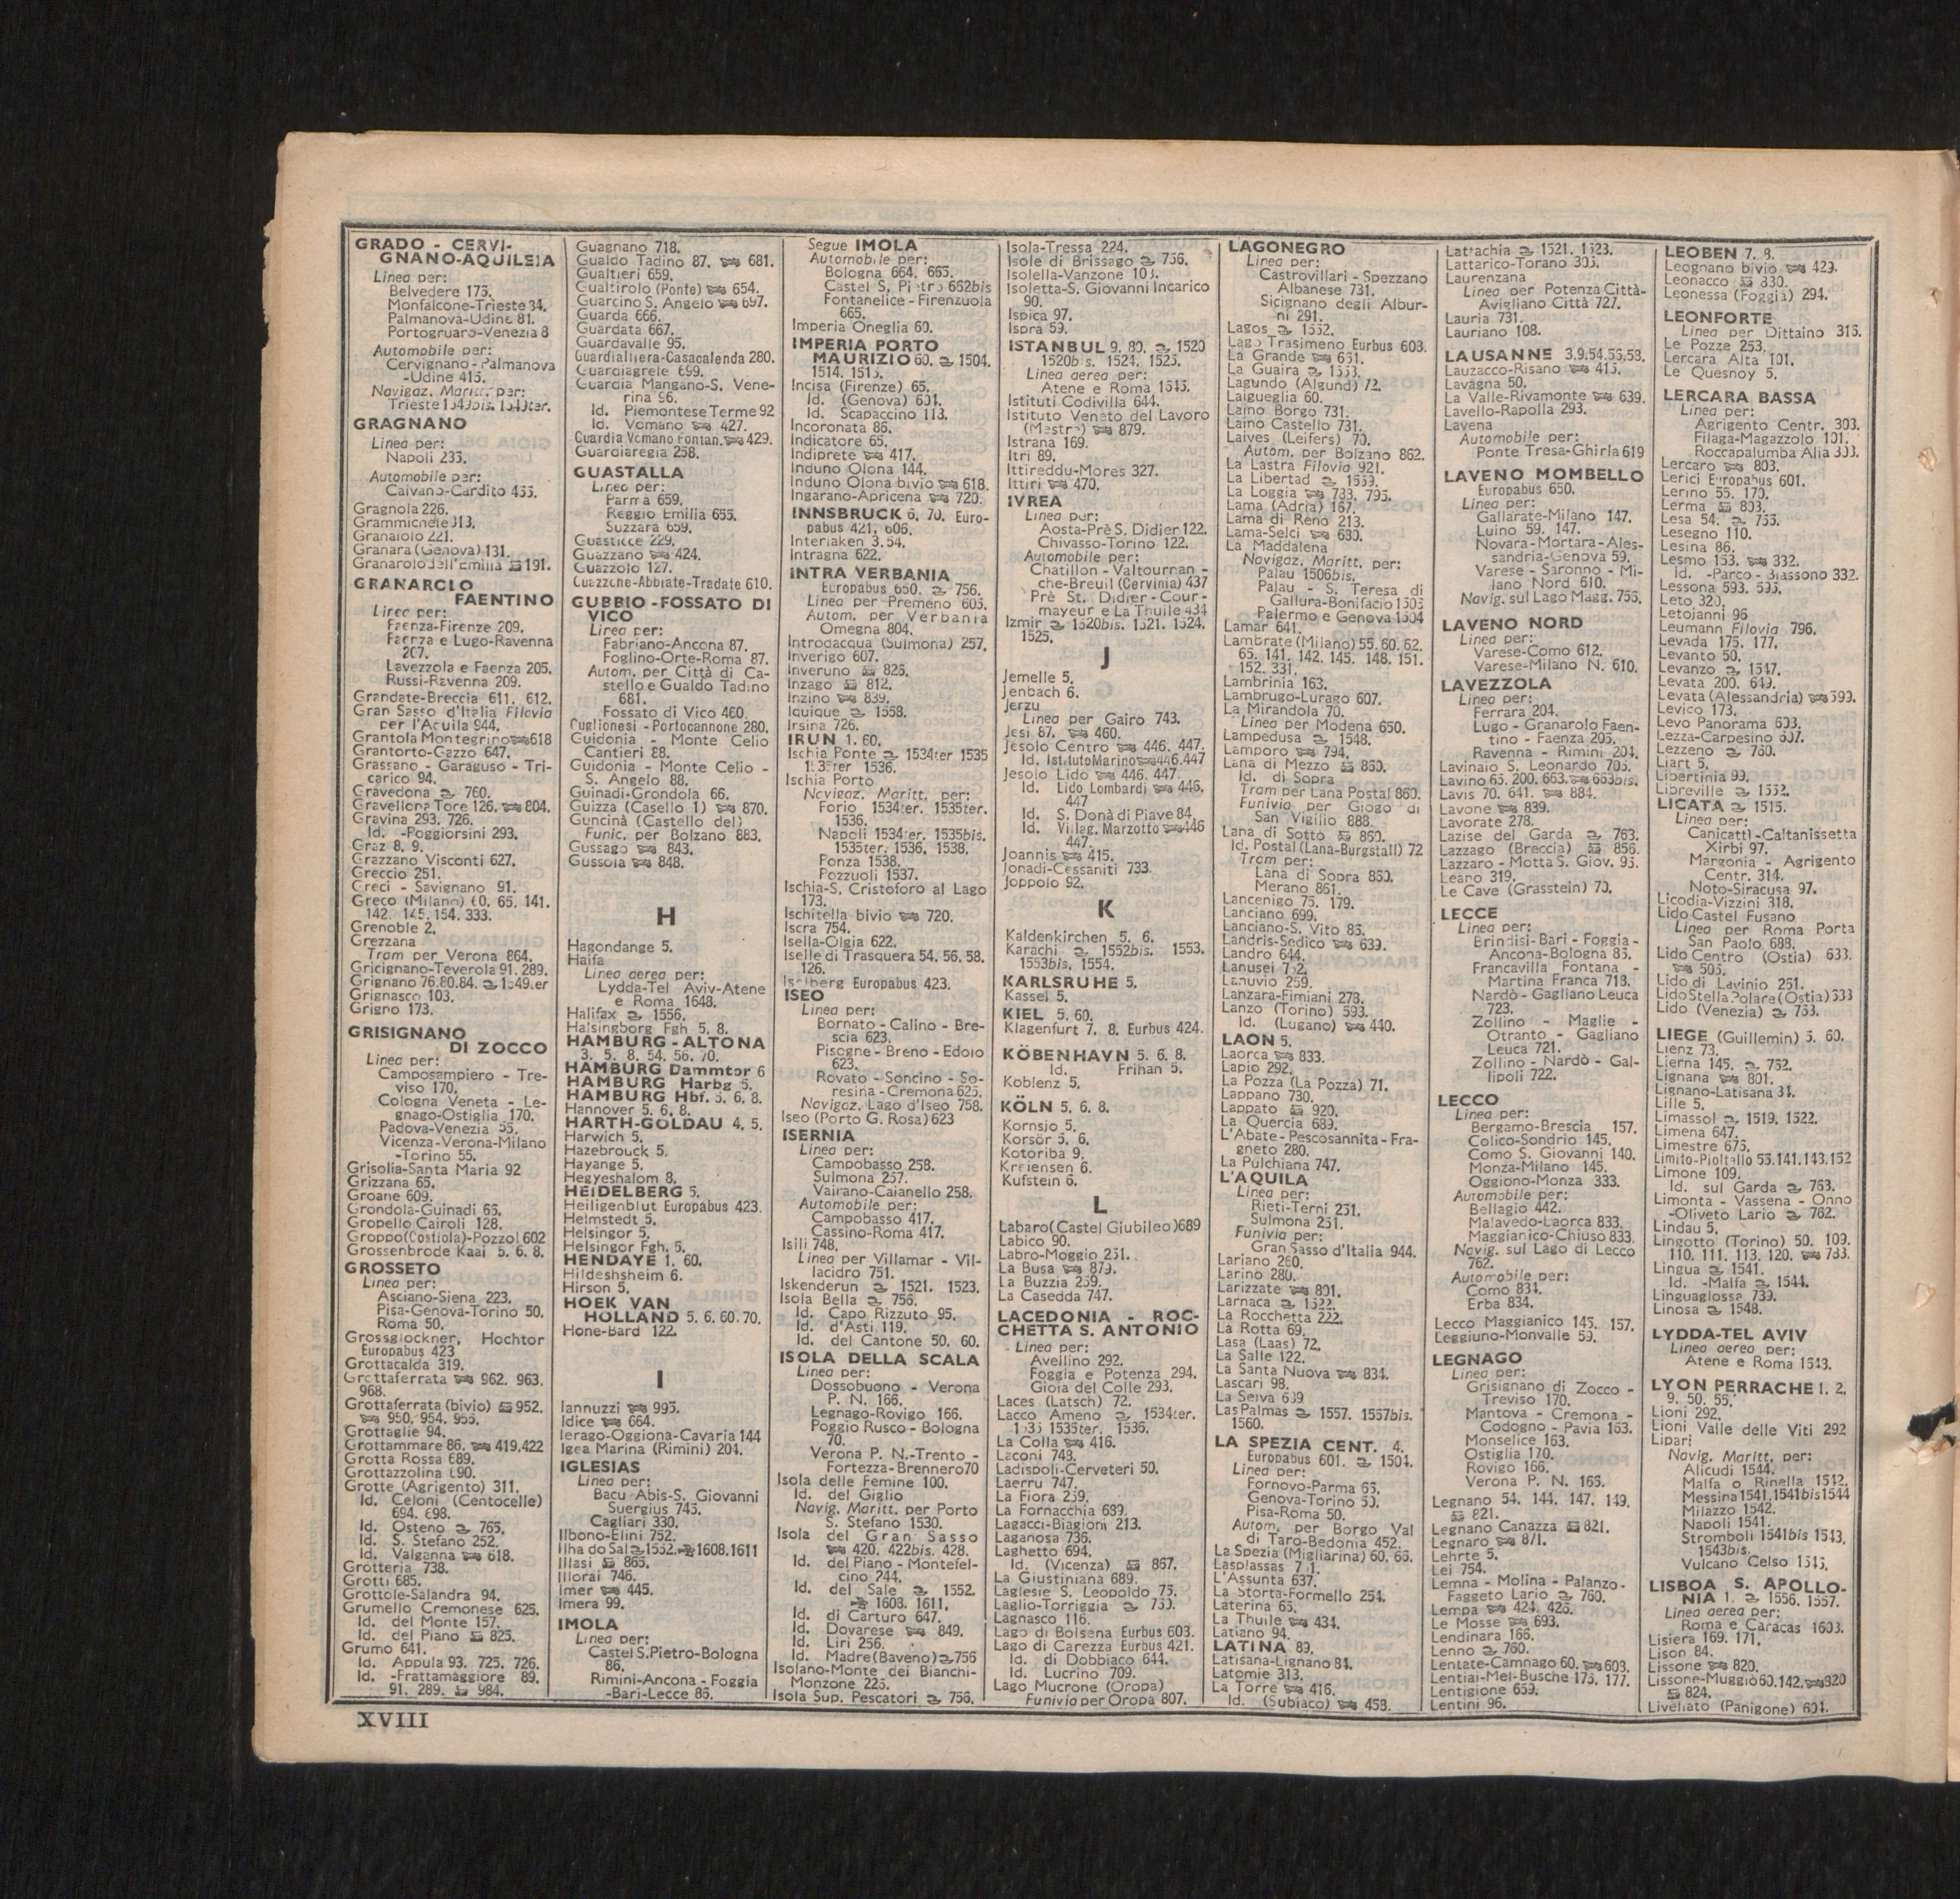 GRADO - CERVI-
GNANO-AQUILEIA
Linea per:
Belvedere 175.
Monfalcone-Trieste 84.
Palmanova-Udine 81.
Portogruaro-Venezia 8
Automobile per:
Cervignano-Palmanova
-Udine 415.
Navigaz. Maritt. per:
Trieste 1549bis. 1549ter.
GRAGNANO
Linea per:
Napoli 235.
Automobile per:
Caivano-Cardito 455.
Gragnola 226.
Grammichele 313.
Granaiolo 221.
Granara (Genova) 131.
Granarolo dell'Emilia 191.
GRANAROLO
FAENTINO
Linea per:
Faenza-Firenze 209.
Faenza e Lugo-Ravenna
207.
Lavezzola e Faenza 205.
Russi-Ravenna 209.
Grandate-Breccia 611. 612.
Gran Sasso d'Italia Filovia
per l'Aquila 944.
Grantola Montegrino 618
Grantorto-Gazzo 647.
Grassano - Garaguso - Tri-
carico 94.
Gravedona 760.
Gravellona Toce 126. 804.
Gravina 293. 726.
Id. -Poggiorsini 293.
Graz 8, 9.
Grazzano Visconti 627.
Greccio 251.
Greci - Savignano 91.
Greco (Milano) 60. 65. 141.
142. 145. 154. 333.
Grenoble 2.
Grezzana
Tram per Verona 864.
Gricignano-Teverola 91. 289.
Grignano 76.80.84. 1549ter
Grignasco 103.
Grigno 173.
GRISIGNANO
DI ZOCCO
Linea per:
Camposampiero - Tre-
viso 170.
Cologna Veneta - Le-
gnago-Ostiglia 170.
Padova-Venezia 55.
Vicenza-Verona-Milano
-Torino 55.
Grisolia-Santa Maria 92
Grizzana 65.
Groane 609.
Grondola-Guinadi 66.
Gropello Cairoli 128.
Groppo (Costiola)-Pozzol 602
Grossenbrode Kaai 5. 6. 8.
GROSSETO
Linea per:
Asciano-Siena 223.
Pisa-Genova-Torino 50.
Roma 50.
Grossglockner, Hochtor
Europabus 423
Grottacalda 319.
Grottaferrata 962. 963.
968.
Grottaferrata (bivio) 952.
950. 954. 955.
Grottaglie 94.
Grottammare 86. 419.422
Grotta Rossa 689.
Grottazzolina 690.
Grotte (Agrigento) 311.
Id. Celoni (Centocelle)
694. 698.
Id. Osteno 765.
Id. S. Stefano 252.
Id. Valganna 618.
Grotteria 738.
Grotti 685.
Grottole-Salandra 94.
Grumello Cremonese 625.
Id. del Monte 157.
Id. del Piano 825.
Grumo 641.
Id. Appula 93. 725. 726.
Id. -Frattamaggiore 89.
91. 289. 984.
Guagnano 718.
Gualdo Tadino 87. 681.
Gualtieri 659.
Gualtirolo (Ponte) 654.
Guarcino S. Angelo 697.
Guarda 666.
Guardata 667.
Guardavalle 95.
Guardialfiera-Casacalenda 280.
Guardiagrele 699.
Guardia Mangano-S. Vene-
rina 96.
Id. Piemontese Terme 92
Id. Vomano 427.
Guardia Vomano Fontan. 429.
Guardiaregia 258.
GUASTALLA
Linea per:
Parma 659.
Reggio Emilia 655.
Suzzara 659.
Guasticce 229.
Guazzano 424.
Guazzolo 127.
Guazzone-Abbiate-Tradate 610.
GUBBIO - FOSSATO DI
VICO
Linea per:
Fabriano-Ancona 87.
Foglino-Orte-Roma 87.
Autom. per Città di Ca-
stello e Gualdo Tadino
681.
Fossato di Vico 460.
Guglionesi - Portocannone 280.
Guidonia - Monte Celio
Cantieri 88.
Guidonia - Monte Celio -
S. Angelo 88.
Guinadi-Grondola 66.
Guizza (Casello 1) 870.
Guncinà (Castello del)
Funic. per Bolzano 883.
Gussago 843.
Gussola 848.
H
Hagondange 5.
Haifa
Linea aerea per:
Lydda-Tel Aviv-Atene
e Roma 1648.
Halifax 1556.
Halsingborg Fgh 5. 8.
HAMBURG - ALTONA
3. 5. 8. 54. 56. 70.
HAMBURG Dammtor 6
HAMBURG Harbg 5.
HAMBURG Hbf. 5. 6. 8.
Hannover 5. 6. 8.
HARTH-GOLDAU 4. 5.
Harwich 5.
Hazebrouck 5.
Hayange 5.
Hegyeshalom 8.
HEIDELBERG 5.
Heiligenblut Europabus 423.
Helmstedt 5.
Helsingor 5.
Helsingor Fgh. 5.
HENDAYE 1. 60.
Hildeshsheim 6.
Hirson 5.
HOEK VAN
HOLLAND 5. 6. 60. 70.
Hone-Bard 122.
I
Iannuzzi 995.
Idice 664.
Ierago-Oggiona-Cavaria 144
Igea Marina (Rimini) 204.
IGLESIAS
Linea per:
Bacu Abis-S. Giovanni
Suergius 745.
Cagliari 330.
Ilbono-Elini 752.
Ilha do Sal 1552. 1608.1611
Illasi 865.
Illorai 746.
Imer 445.
Imera 99.
IMOLA
Linea per:
Castel S.Pietro-Bologna
86.
Rimini-Ancona - Foggia
-Bari-Lecce 86.
Segue IMOLA
Automobile per:
Bologna 664. 665.
Castel S. Pietro 662bis
Fontanelice - Firenzuola
665.
Imperia Oneglia 60.
IMPERIA PORTO
MAURIZIO 60. 1504.
1514. 1515.
Incisa (Firenze) 65.
Id. (Genova) 601.
Id. Scapaccino 113.
Incoronata 86.
Indicatore 65.
Indiprete 417.
Induno Olona 144.
Induno Olona bivio 618.
Ingarano-Apricena 720.
INNSBRUCK 6. 70. Euro-
pabus 421. 606.
Interlaken 3. 54.
Intragna 622.
INTRA VERBANIA
Europabus 650. 756.
Linea per Premeno 605.
Autom. per Verbania
Omegna 804.
Introdacqua (Sulmona) 257.
Inverigo 607.
Inveruno 826.
Inzago 812.
Inzino 839.
Iquique 1558.
Irsina 726.
IRUN 1. 60.
Ischia Ponte 1534ter 1535
1535ter 1536.
Ischia Porto
Navigaz. Maritt. per:
Forio 1534ter. 1535ter.
1536.
Napoli 1534ter. 1535bis.
1535ter. 1536. 1538.
Ponza 1538.
Pozzuoli 1537.
Ischia-S. Cristoforo al Lago
173.
Ischitella bivio 720.
Iscra 754.
Isella-Olgia 622.
Iselle di Trasquera 54. 56. 58.
126.
Iselberg Europabus 423.
ISEO
Linea per:
Bornato - Calino - Bre-
scia 623.
Pisogne - Breno - Edolo
623.
Rovato - Soncino - So-
resina - Cremona 625.
Navigaz. Lago d'Iseo 758.
Iseo (Porto G. Rosa) 623
ISERNIA
Linea per:
Campobasso 258.
Sulmona 257.
Vairano-Caianello 258.
Automobile per:
Campobasso 417.
Cassino-Roma 417.
Isili 748.
Linea per Villamar - Vil-
lacidro 751.
Iskenderun 1521. 1523.
Isola Bella 756.
Id. Capo Rizzuto 95.
Id. d'Asti 119.
Id. del Cantone 50. 60.
ISOLA DELLA SCALA
Linea per:
Dossobuono - Verona
P. N. 166.
Legnago-Rovigo 166.
Poggio Rusco - Bologna
70.
Verona P. N.-Trento -
Fortezza-Brennero 70
Isola delle Femine 100.
Id. del Giglio
Navig. Maritt. per Porto
S. Stefano 1530.
Isola del Gran Sasso
420. 422bis. 428.
Id. del Piano - Montefel-
cino 244.
Id. del Sale 1552.
1608. 1611.
Id. di Carturo 647.
Id. Dovarese 849.
Id. Liri 256.
Id. Madre (Baveno) 756
Isolano-Monte dei Bianchi-
Monzone 225.
Isola Sup. Pescatori 756.
Isola-Tressa 224.
Isole di Brissago 756.
Isolella-Vanzone 103.
Isoletta-S. Giovanni Incarico
90.
Ispica 97.
Ispra 59.
ISTANBUL 9. 80. 1520
1520bis. 1524. 1525.
Linea aerea per:
Atene e Roma 1645.
Istituti Codivilla 644.
Istituto Veneto del Lavoro
(Mestre) 879.
Istrana 169.
Itri 89.
Ittireddu-Mores 327.
Ittiri 470.
IVREA
Linea per:
Aosta-Prè S. Didier 122.
Chivasso-Torino 122.
Automobile per:
Chatillon - Valtournan -
che-Breuil (Cervinia) 437
Prè St. Didier - Cour-
mayeur e La Thuile 434
Izmir 1520bis. 1521. 1524.
1525.
J
Jemelle 5.
Jenbach 6.
Jerzu
Linea per Gairo 743.
Jesi 87. 460.
Jesolo Centro 446. 447.
Id. Istituto Marino 446.447
Jesolo Lido 446. 447.
Id. Lido Lombardi 446.
447
Id. S. Donà di Piave 84
Id. Villag. Marzotto 446
447.
Joannis 415.
Jonadi-Cessaniti 733.
Joppolo 92.
K
Kaldenkirchen 5. 6.
Karachi 1552bis. 1553.
1553bis. 1554.
KARLSRUHE 5.
Kassel 5.
KIEL 5. 60.
Klagenfurt 7. 8. Eurbus 424.
KÖBENHAVN 5. 6. 8.
Id. Frihan 5.
Koblenz 5.
KÖLN 5. 6. 8.
Kornsjo 5.
Korsör 5. 6.
Kotoriba 9.
Kreiensen 6.
Kufstein 6.
L
Labaro (Castel Giubileo) 689
Labico 90.
Labro-Moggio 251.
La Busa 879.
La Buzzia 259.
La Casedda 747.
LACEDONIA - ROC-
CHETTA S. ANTONIO
Linea per:
Avellino 292.
Foggia e Potenza 294.
Gioia del Colle 293.
Laces (Latsch) 72.
Lacco Ameno 1534ter.
1535 1535ter. 1536.
La Colla 416.
Laconi 748.
Ladispoli-Cerveteri 50.
Laerru 747.
La Fiora 259.
La Fornacchia 689.
Lagacci-Biagioni 213.
Laganosa 736.
Laghetto 694.
Id. (Vicenza) 867.
La Giustiniana 689.
Laglesie S. Leopoldo 75.
Laglio-Torriggia 759.
Lagnasco 116.
Lago di Bolsena Eurbus 603.
Lago di Carezza Eurbus 421.
Id. di Dobbiaco 644.
Id. Lucrino 709.
Lago Mucrone (Oropa)
Funivia per Oropa 807.
LAGONEGRO
Linea per:
Castrovillari - Spezzano
Albanese 731.
Sicignano degli Albur-
ni 291.
Lagos 1552.
Lago Trasimeno Eurbus 603.
La Grande 651.
La Guaira 1553.
Lagundo (Algund) 72.
Laigueglia 60.
Laino Borgo 731.
Laino Castello 731.
Laives (Leifers) 70.
Autom. per Bolzano 862.
La Lastra Filovia 921.
La Libertad 1559.
La Loggia 783. 795.
Lama (Adria) 167.
Lama di Reno 213.
Lama-Selci 680.
La Maddalena
Navigaz. Maritt. per:
Palau 1506bis.
Palau - S. Teresa di
Gallura-Bonifacio 1505
Palermo e Genova 1504
Lamar 641.
Lambrate (Milano) 55. 60. 62.
65. 141. 142. 145. 148. 151.
152. 331.
Lambrinia 163.
Lambrugo-Lurago 607.
La Mirandola 70.
Linea per Modena 650.
Lampedusa 1548.
Lamporo 794.
Lana di Mezzo 860.
Id. di Sopra
Tram per Lana Postal 860.
Funivia per Giogo di
San Vigilio 888.
Lana di Sotto 860.
Id. Postal (Lana-Burgstall) 72
Tram per:
Lana di Sopra 860.
Merano 861.
Lancenigo 75. 179.
Lanciano 699.
Lanciano-S. Vito 86.
Landris-Sedico 639.
Landro 644.
Lanusei 752.
Lanuvio 259.
Lanzara-Fimiani 278.
Lanzo (Torino) 593.
Id. (Lugano) 440.
LAON 5.
Laorca 833.
Lapio 292.
La Pozza (La Pozza) 71.
Lappano 730.
Lappato 920.
La Quercia 689.
L'Abate - Pescosannita - Fra-
gneto 280.
La Pulchiana 747.
L'AQUILA
Linea per:
Rieti-Terni 251.
Sulmona 251.
Funivia per:
Gran Sasso d'Italia 944.
Lariano 260.
Larino 280.
Larizzate 801.
Larnaca 1522.
La Rocchetta 222.
La Rotta 69.
Lasa (Laas) 72.
La Salle 122.
La Santa Nuova 834.
Lascari 98.
La Selva 639
Las Palmas 1557. 1557bis.
1560.
LA SPEZIA CENT. 4.
Europabus 601. 1504.
Linea per:
Fornovo-Parma 66.
Genova-Torino 50.
Pisa-Roma 50.
Autom. per Borgo Val
di Taro-Bedonia 452.
La Spezia (Migliarina) 60. 66.
Lasplassas 751.
L'Assunta 637.
La Storta-Formello 254.
Laterina 65.
La Thuile 434.
Latiano 94.
LATINA 89.
Latisana-Lignano 84.
Latomie 313.
La Torre 416.
Id. (Subiaco) 458.
Lattachia 1521. 1523.
Lattarico-Torano 305.
Laurenzana
Linea per Potenza Città-
Avigliano Città 727.
Lauria 731.
Lauriano 108.
LAUSANNE 3.9.54.56.58.
Lauzacco-Risano 415.
Lavagna 50.
La Valle-Rivamonte 639.
Lavello-Rapolla 293.
Lavena
Automobile per:
Ponte Tresa-Ghirla 619
LAVENO MOMBELLO
Europabus 650.
Linea per:
Gallarate-Milano 147.
Luino 59. 147.
Novara-Mortara-Ales-
sandria-Genova 59.
Varese - Saronno - Mi-
lano Nord 610.
Navig. sul Lago Magg. 756.
LAVENO NORD
Linea per:
Varese-Como 612.
Varese-Milano N. 610.
LAVEZZOLA
Linea per:
Ferrara 204.
Lugo - Granarolo Faen-
tino - Faenza 205.
Ravenna - Rimini 204.
Lavinaio S. Leonardo 705.
Lavino 65. 200. 663. 663bis.
Lavis 70. 641. 884.
Lavone 839.
Lavorate 278.
Lazise del Garda 763.
Lazzago (Breccia) 856.
Lazzaro - Motta S. Giov. 95.
Leano 319.
Le Cave (Grasstein) 70.
LECCE
Linea per:
Brindisi-Bari - Foggia -
Ancona-Bologna 86.
Francavilla Fontana -
Martina Franca 718.
Nardò - Gagliano Leuca
723.
Zollino - Maglie -
Otranto - Gagliano
Leuca 721.
Zollino - Nardò - Gal-
lipoli 722.
LECCO
Linea per:
Bergamo-Brescia 157.
Colico-Sondrio 145.
Como S. Giovanni 140.
Monza-Milano 145.
Oggiono-Monza 333.
Automobile per:
Bellagio 442.
Malavedo-Laorca 833.
Maggianico-Chiuso 833.
Navig. sul Lago di Lecco
762.
Automobile per:
Como 834.
Erba 834.
Lecco Maggianico 145. 157.
Leggiuno-Monvalle 59.
LEGNAGO
Linea per:
Grisignano di Zocco -
Treviso 170.
Mantova - Cremona -
Codogno - Pavia 163.
Monselice 163.
Ostiglia 170.
Rovigo 166.
Verona P. N. 166.
Legnano 54. 144. 147. 149.
821.
Legnano Canazza 821.
Legnaro 871.
Lehrte 5.
Lei 754.
Lemna - Molina - Palanzo -
Faggeto Lario 760.
Lempa 424. 426.
Le Mosse 693.
Lendinara 166.
Lenno 760.
Lentate-Camnago 60. 603.
Lentiai-Mel-Busche 175. 177.
Lentigione 659.
Lentini 96.
LEOBEN 7. 8.
Leognano bivio 429.
Leonacco 880.
Leonessa (Foggia) 294.
LEONFORTE
Linea per Dittaino 316.
Le Pozze 253.
Lercara Alta 101.
Le Quesnoy 5.
LERCARA BASSA
Linea per:
Agrigento Centr. 303.
Filaga-Magazzolo 101.
Roccapalumba Alia 303.
Lercaro 803.
Lerici Europabus 601.
Lerino 55. 170.
Lerma 803.
Lesa 54. 756.
Lesegno 110.
Lesina 86.
Lesmo 153. 332.
Id. -Parco - Biassono 332.
Lessona 593. 595.
Leto 320.
Letojanni 96
Leumann Filovia 796.
Levada 175. 177.
Levanto 50.
Levanzo 1547.
Levata 200. 649.
Levata (Alessandria) 599.
Levico 173.
Levo Panorama 603.
Lezza-Carpesino 607.
Lezzeno 760.
Liart 5.
Libertinia 99.
Libreville 1552.
LICATA 1515.
Linea per:
Canicattì-Caltanissetta
Xirbi 97.
Margonia - Agrigento
Centr. 314.
Noto-Siracusa 97.
Licodia-Vizzini 318.
Lido Castel Fusano
Linea per Roma Porta
San Paolo 688.
Lido Centro (Ostia) 633.
505.
Lido di Lavinio 261.
Lido Stella Polare (Ostia) 633
Lido (Venezia) 763.
LIEGE (Guillemin) 5. 60.
Lienz 73.
Lierna 145. 762.
Lignana 801.
Lignano-Latisana 84.
Lille 5.
Limassol 1519. 1522.
Limena 647.
Limestre 675.
Limito-Pioltello 55.141.143.152
Limone 109.
Id. sul Garda 763.
Limonta - Vassena - Onno
-Oliveto Lario 762.
Lindau 5.
Lingotto (Torino) 50. 109.
110. 111. 113. 120. 783.
Lingua 1541.
Id. -Malfa 1544.
Linguaglossa 739.
Linosa 1548.
LYDDA-TEL AVIV
Linea aerea per:
Atene e Roma 1643.
LYON PERRACHE 1. 2.
9. 50. 55.
Lioni 292.
Lioni Valle delle Viti 292
Lipari
Navig. Maritt. per:
Alicudi 1544.
Malfa o Rinella 1542.
Messina 1541. 1541bis 1544
Milazzo 1542.
Napoli 1541.
Stromboli 1541bis 1543.
1543bis.
Vulcano Celso 1545.
LISBOA S. APOLLO-
NIA 1. 1556. 1557.
Linea aerea per:
Roma e Caracas 1603.
Lisiera 169. 171.
Lison 84.
Lissone 820.
Lissone-Muggiò 60.142. 820
824.
Livellato (Panigone) 604.
XVIII